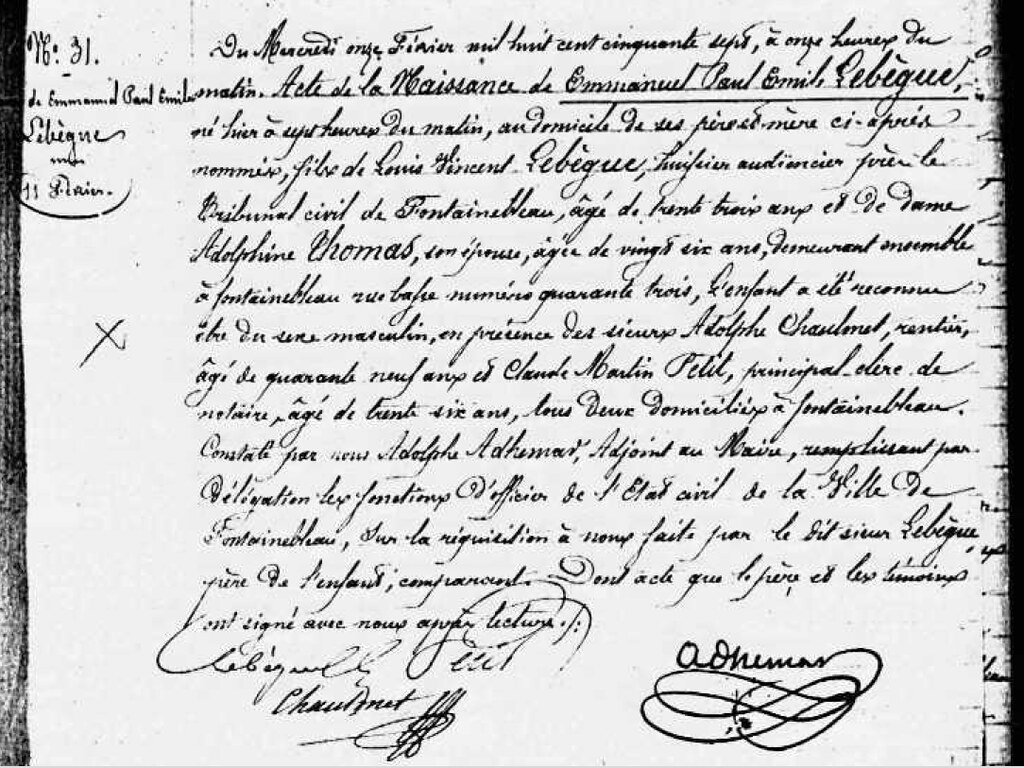 N.º 31.
de Emmanuel Paul Emile
Lebègue
11 Février.
Du Mercredi onze Février mil huit cent cinquante sept, à onze heures du
matin. Acte de la Naissance de Emmanuel Paul Emile Lebègue,
né hier à sept heures du matin, au domicile de ses père et mère ci-après
nommés, fils de Louis Vincent Lebègue, huissier audiencier près le
Tribunal civil de Fontainebleau, âgé de trente trois ans et de dame
Adolphine Thomas, son épouse, âgée de vingt six ans, demeurant ensemble
à fontainebleau rue basse numéro quarante trois, L'enfant a été reconnu
être du sexe masculin, en présence des sieurs Adolphe Chaulmet, rentier,
âgé de quarante neuf ans et Claude Martin Petit, principal clerc de
notaire, âgé de trente six ans, tous deux domiciliés à fontainebleau.
Constaté par nous Adolphe Adhemar, Adjoint au Maire, remplissant par
délégation les fonctions d'officier de l'Etat civil de la Ville de
Fontainebleau, sur la réquisition à nous faite par le dit sieur Lebègue,
père de l'enfant, comparant. Dont acte que le père et les témoins
ont signé avec nous après lecture./.
Lebègue Petit
adhemar
Chaulmet